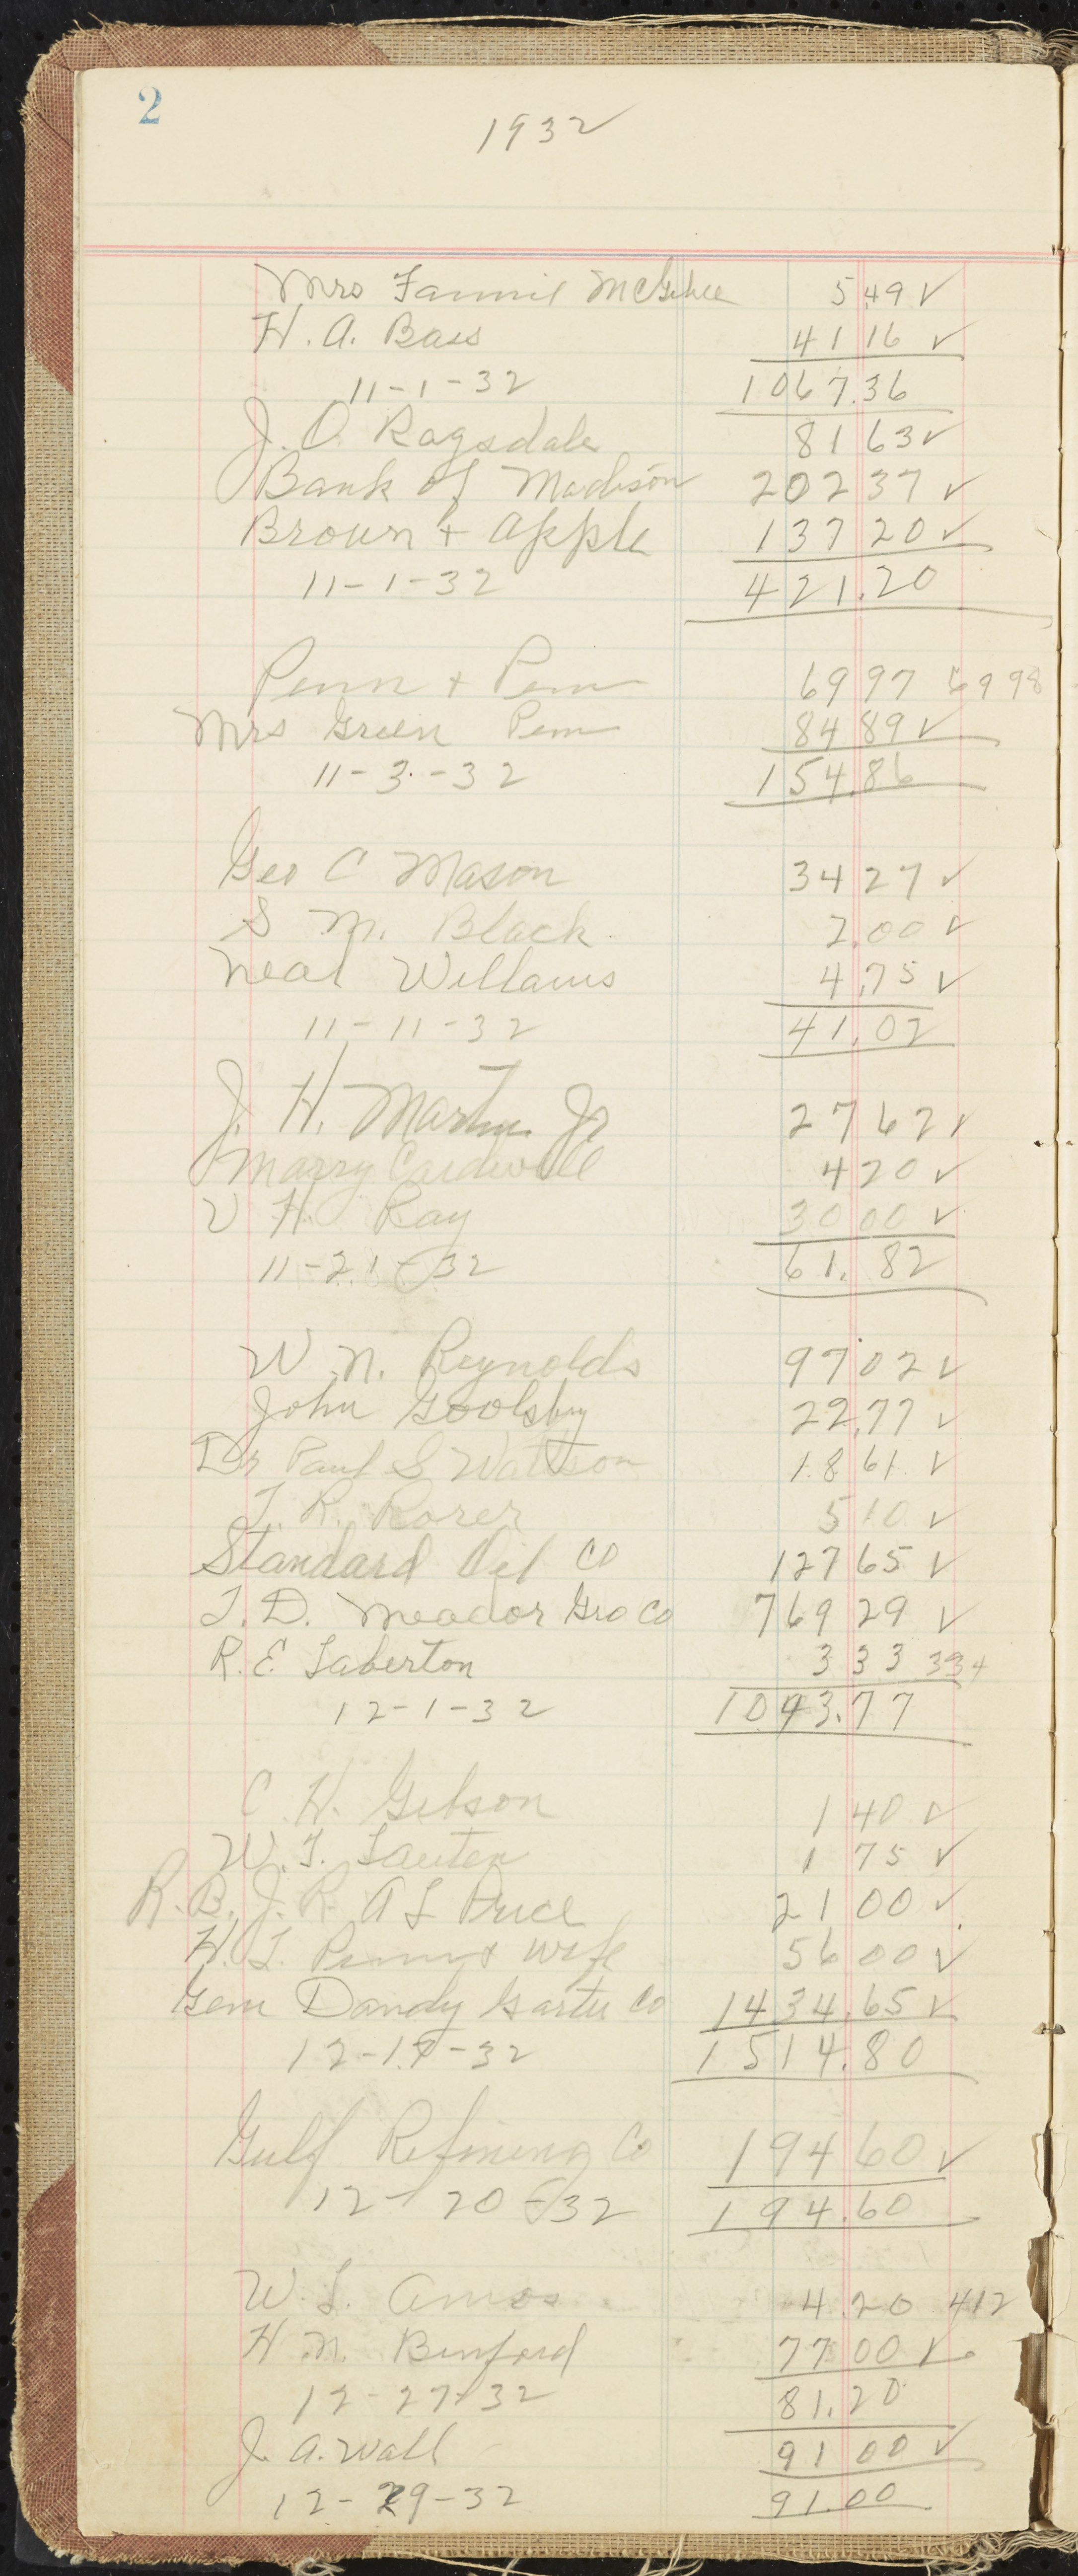 2
1932
Mrs Fannie McGehee 5 49 ✓
H. A. Bass 41 16 ✓
11-1-32 1067.36
J. O. Ragsdale 81 63 ✓
Bank of Madison 202 37 ✓
Brown + Apple 137 20 ✓
11-1-32 421.20
Penn + Penn 69 97 69 98
Mrs Green Penn 84 89 ✓
11-3-32 154.86
Geo C Mason 34 27 ✓
S M. Black 2.00 ✓
Neal Willams 4.75 ✓
11-11-32 41.02
J. H. Martin Jr 27 62 ✓
Marry Cardwell 4 20 ✓
V H. Ray 30 00 ✓
11-21-32 61.82
W. N. Reynolds 97 02 ✓
John Goolsby 22.77 ✓
Dr Paul S Wattson 18 61 ✓
T. R. Rorer 5 10 ✓
Standard Oil Co 127 65 ✓
T. D. Meador Gro Co 769 29 ✓
R. E. Taberton 3 33 334
12-1-32 1043.77
C. H. Gibson 1 40 ✓
W. T. 1 75 ✓
R. B. J. R. A L Price 21 00 ✓
H. T. Penn + wife 56 00 ✓
Gem Dandy Garter Co 1434.65 ✓
12-17-32 1514.80
Gulf Refining Co 194 60 ✓
12-20-32 194.60
W. L. Amos 4.20 412
H. N. Binford 77 00 ✓
12-27-32 81.20
J. A. Wall 91 00 ✓
12-29-32 91.00